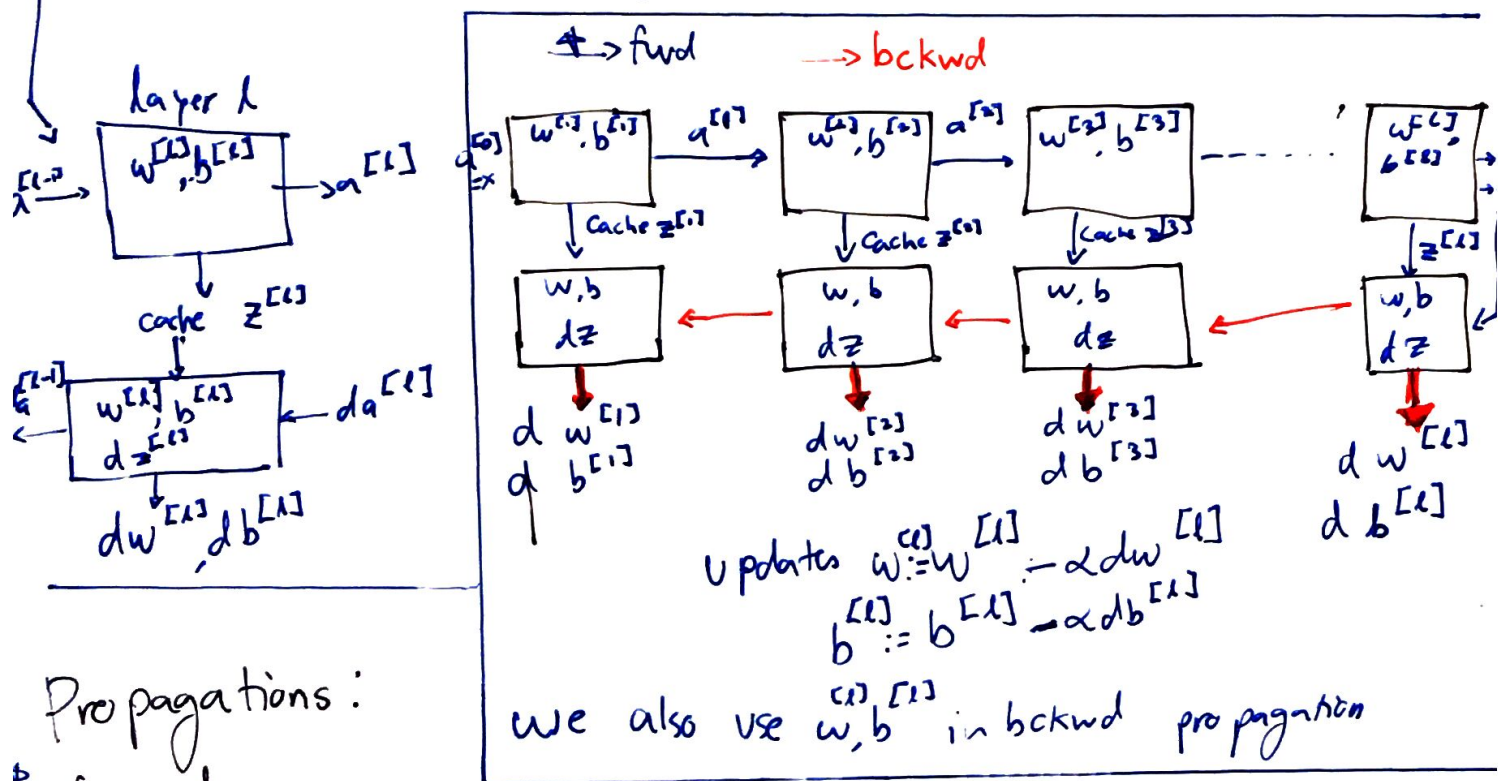 layer l
w^[l], b^[l]
a^[l]
cache z^[l]
w^[l], b^[l]
dz^[l]
da^[l]
dw^[l], db^[l]
Propagations:
→ fwd
→ bckwd
a^[0]
=x
w^[1], b^[1]
a^[1]
w^[2], b^[2]
a^[2]
w^[3], b^[3]
w^[l],
b^[l]
Cache z^[1]
Cache z^[2]
Cache z^[3]
z^[l]
w, b
dz
w, b
dz
w, b
dz
w, b
dz
d w^[1]
d b^[1]
dw^[2]
db^[2]
dw^[3]
db^[3]
d w^[l]
d b^[l]
updates w^[l] := w^[l] - αdw^[l]
b^[l] := b^[l] - αdb^[l]
we also use w^[l], b^[l] in bckwd propagation